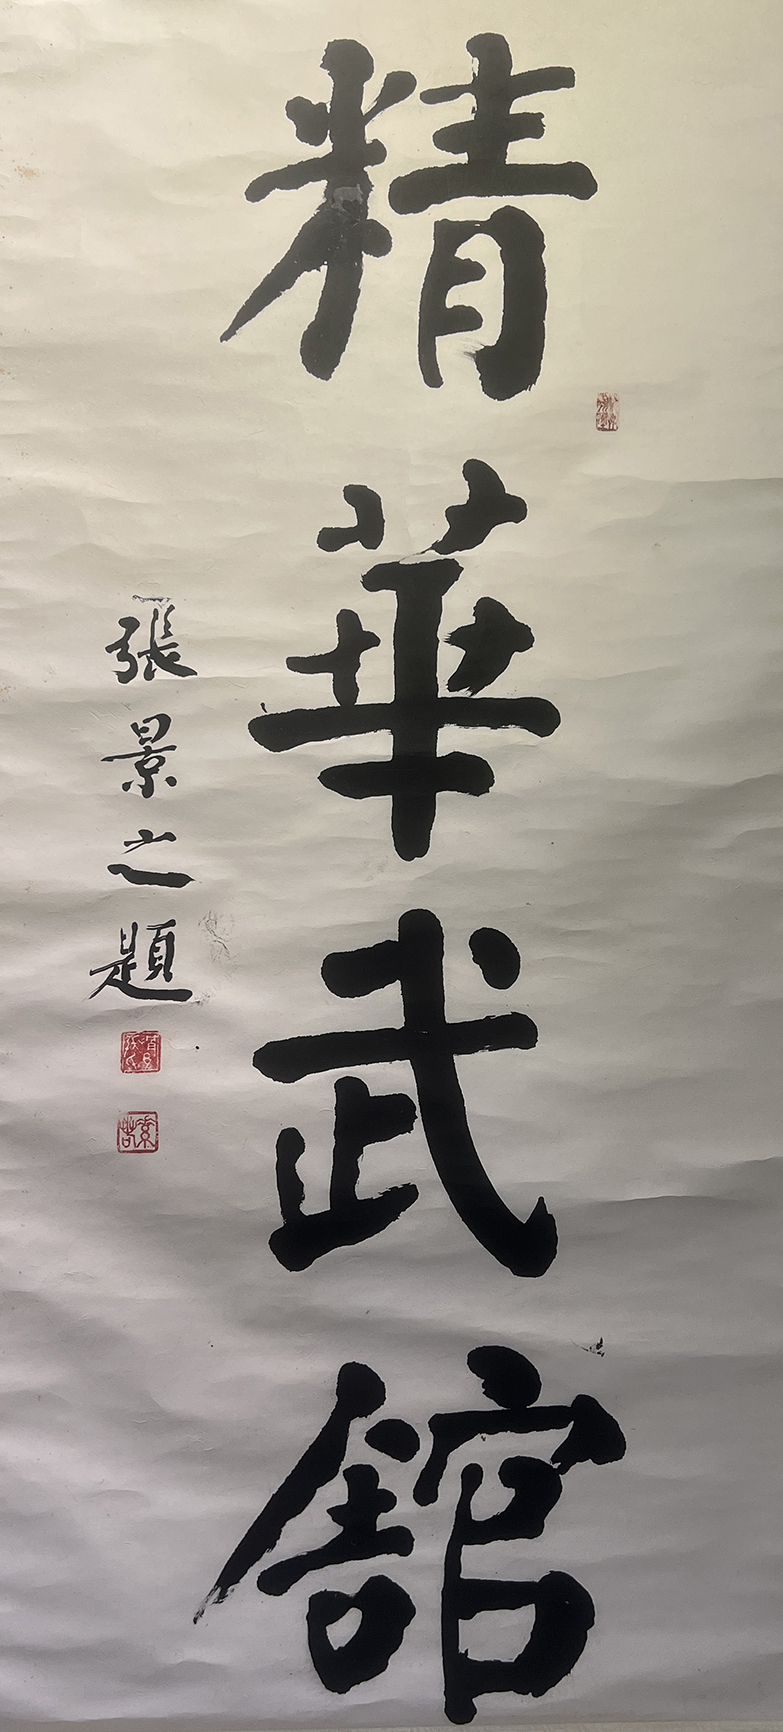 精華武舘
張景之題